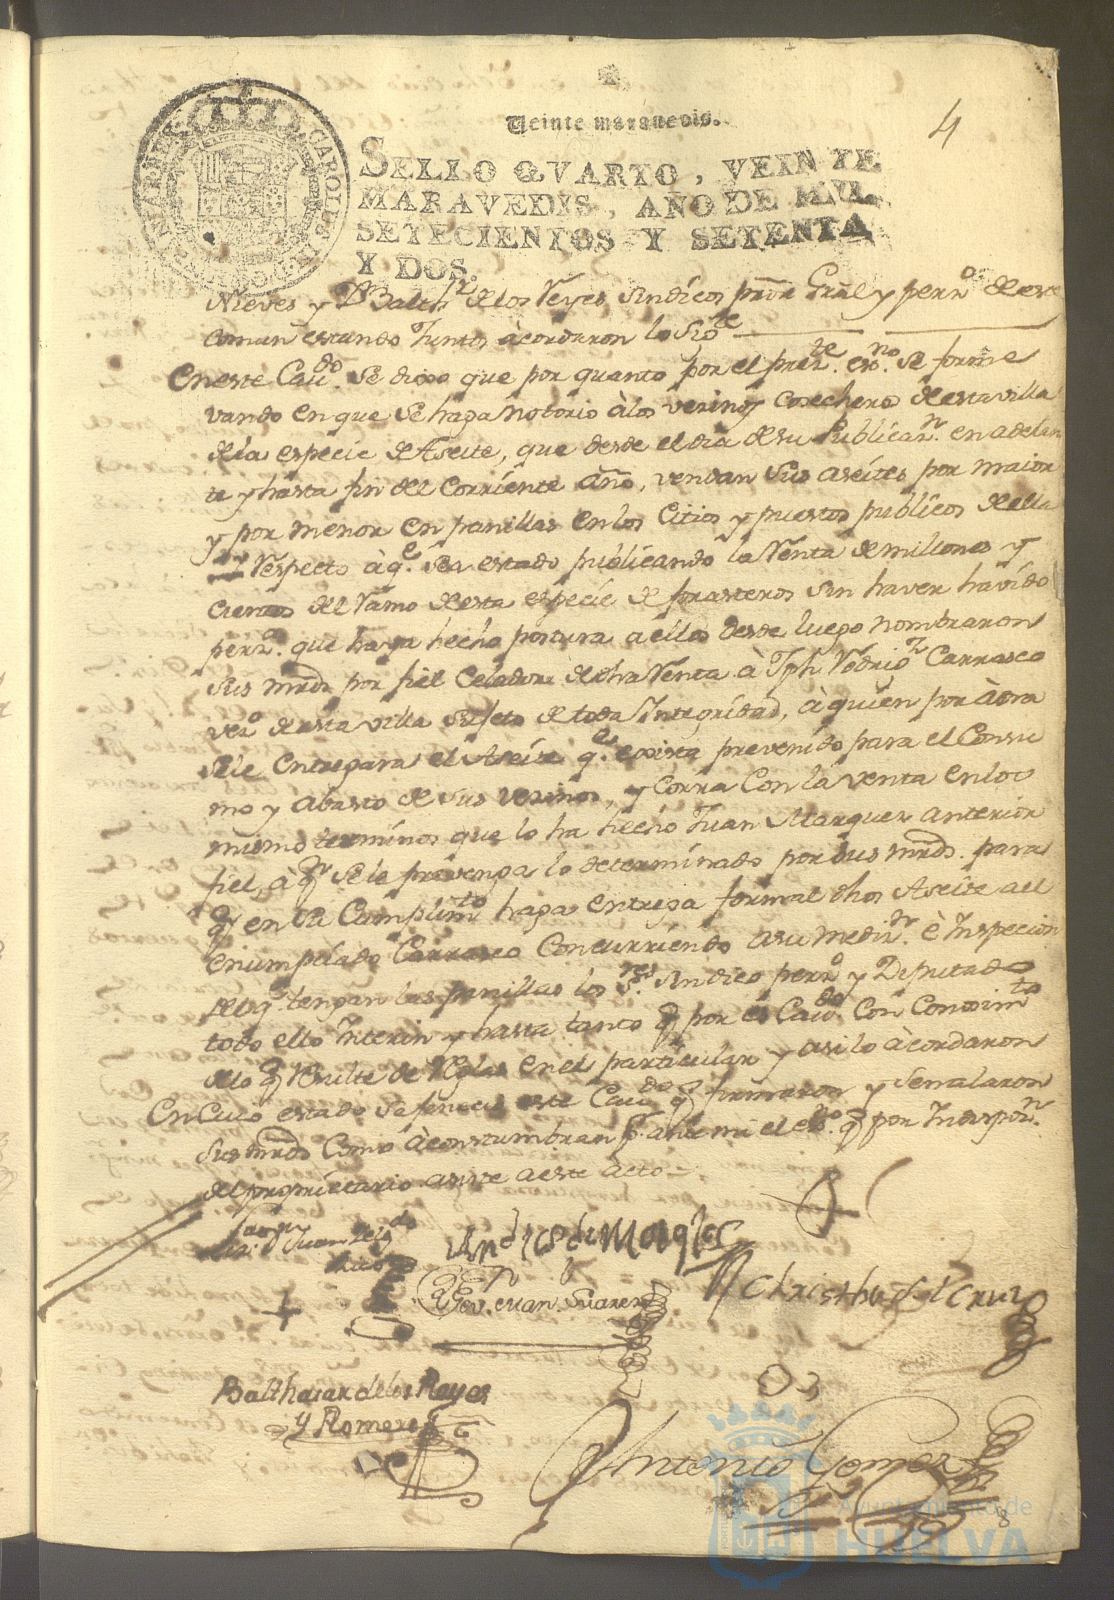 4
Veinte maravedis.
SELLO QVARTO, VEINTE
MARAVEDIS, AÑO DE MIL
SETECIENTOS Y SETENTA
Y DOS.
CAROLUS
Nieves y Dn Balthr de los Reyes, Sindicos pror Gral y perso de este
comun estando Juntos àcordaron lo Sigte
En este Cavdo. Se dixo que por quanto por el preste. esno. se forme
vando en que se haga notorio àlos vezinos cosecheros de esta villa
de la especie de Aseite, que desde el dia de su Publicazn. en adelan
te y hasta fin del Corriente año, vendan sus aseites por maior
y por menor en panillas en los Citios y puestos publicos de ella
Respecto à qe. se ha estado publicando la Renta de millones y
cientos del Ramo de esta especie de forasteros sin haver havido
persa. que haya hecho postura a ellos desde luego nombraron
sus mrds por fiel Celador de dha Renta à Jph Rodrigz Carrasco
vezo de esta villa sujeto de toda Integridad, à quien por àora
se le entregara el Aseite qe. exista prevenido para el Consu
mo y abasto de sus vezinos, y corra Con la venta en los
mismo terminos que lo ha hecho Juan Marquez anterior
fiel, à qn se le prevenga lo determinado por sus mrds. para
q en su Cumplimto haga entrega formal dhos Aseite al
enumpciado Carrasco Concurriendo a su medizn. è Inspecion
de los q tengan las panillas los Sres. Sindico persro y Deputado
todo ello Interin y hasta tanto q por es Cavdo. Con Conosimto
de lo q resulte de Reglas en el particular y asi lo àcordaron
En Cuio estado se fenecio este Cavdo q firmaron y señalaron
sus mrds Como àcostumbran por ante mi el esno. q por Indispon.
del proprietario asiste a este àcto
Juan
Andres de Marquez
Juan Suarez
Christhoval Cruz
Balthasar de los Reyes
y Romero
Antonio Gomez
8
Ayuntamiento de
HUELVA